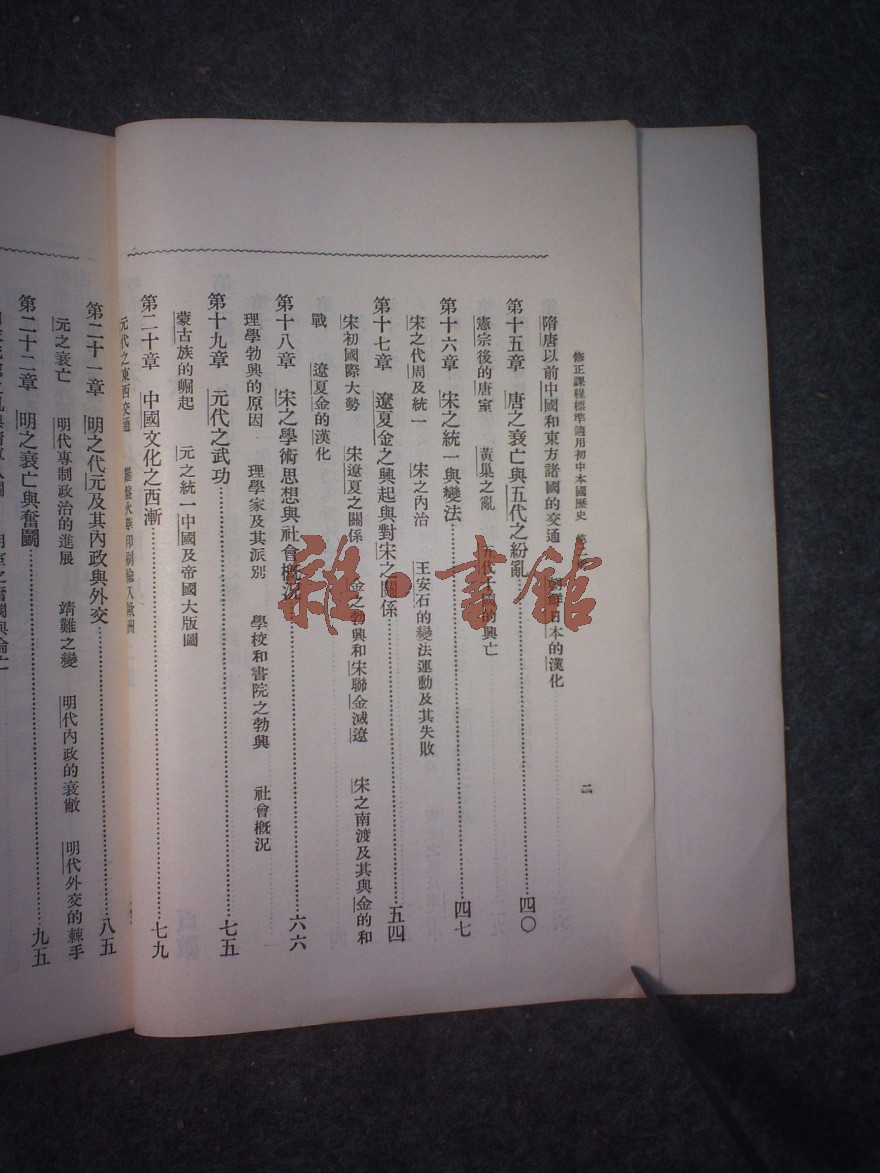 修正課程標準適用初中本國歷史 第 二
隋唐以前中國和東方諸國的交通 朝鮮日本的漢化
第十五章 唐之衰亡與五代之紛亂 四〇
憲宗後的唐室 黃巢之亂 五代十國的興亡
第十六章 宋之統一與變法 四七
宋之代周及統一 宋之內治 王安石的變法運動及其失敗
第十七章 遼夏金之興起與對宋之關係 五四
宋初國際大勢 宋遼夏之關係 金之勃興和宋聯金滅遼 宋之南渡及其與金的和
戰 遼夏金的漢化
第十八章 宋之學術思想與社會概況 六六
理學勃興的原因 理學家及其派別 學校和書院之勃興 社會概況
第十九章 元代之武功 七五
蒙古族的崛起 元之統一中國及帝國大版圖
第二十章 中國文化之西漸 七九
元代之東西交通 羅盤火藥印刷輸入歐洲
第二十一章 明之代元及其內政與外交 八五
元之衰亡 明代專制政治的進展 靖難之變 明代內政的衰敝 明代外交的棘手
第二十二章 明之衰亡與奮鬭 九五
雜·書館